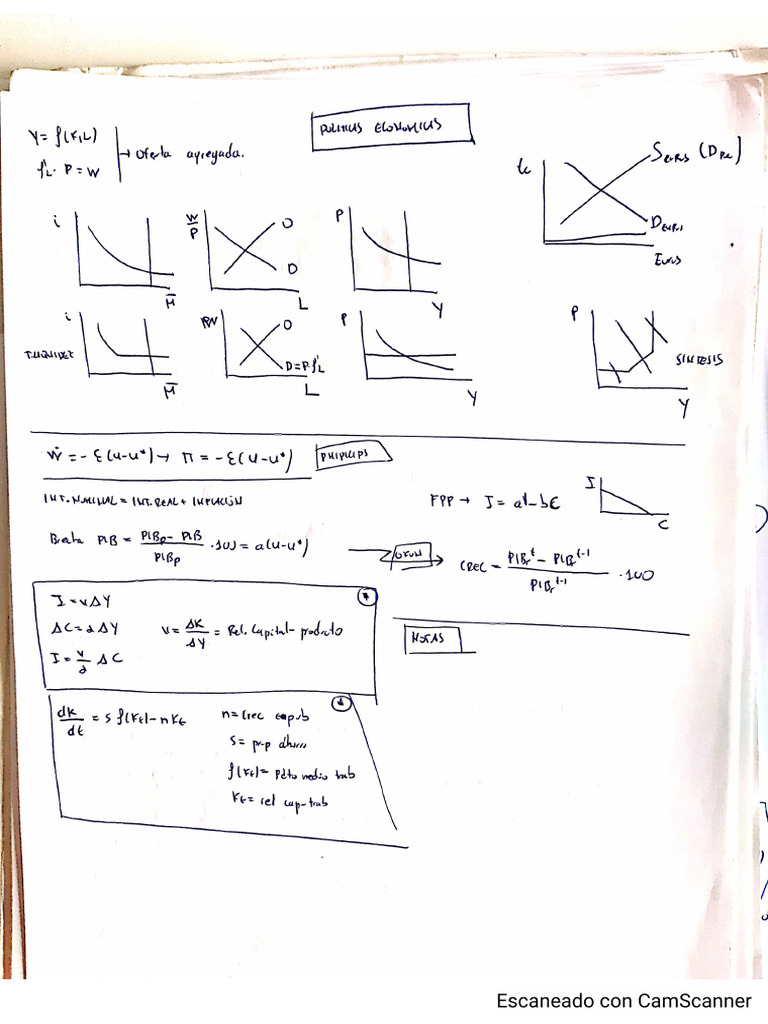 POLITICAS ECONOMICAS
Y = f(K,L)
f'L · P = W
→ Oferta agregada.
tc
S EUROS (D
D EUROS
Euros
i
M̄
W/P
O
D
L
P
Y
i
M̄
O
D = P f'L
L
P
Y
P
SINTESIS
Y
Ẇ = - ε(u-u*) → π = - ε(u-u*)
PHILLIPS
INT. NOMINAL = INT. REAL + INFLACIÓN
FPP → I = a - bC
I
C
Brecha PIB = (PIBp - PIB) / PIBp · 100 = a(u-u*)
OKUN
CREC = (PIBr^t - PIBr^t-1) / PIBr^t-1 · 100
I = vΔY
ΔC = αΔY
v = ΔK/ΔY = Rel. Capital - producto
I = v/α ΔC
NOTAS
dk/dt = s f(Kt) - n Kt
n = Crec
s = prop ahorro
f(Kt) = Pdto medio trab
Kt = rel cap-trab
Escaneado con CamScanner